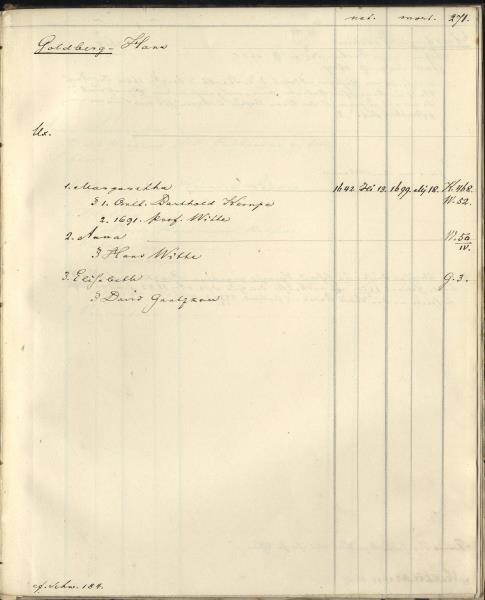 nat. mort. 271.
Goldberg - Hans
Ux.
1. Margaretha 1642 13. 1699 18. K. 468.
1. Barthold Kempe W. 52.
2. 1691. Prof. Witte
2. Anna W. 50/IV.
Hans Witte
3. Elisabeth G. 3.
David
cf. Schw. 184.